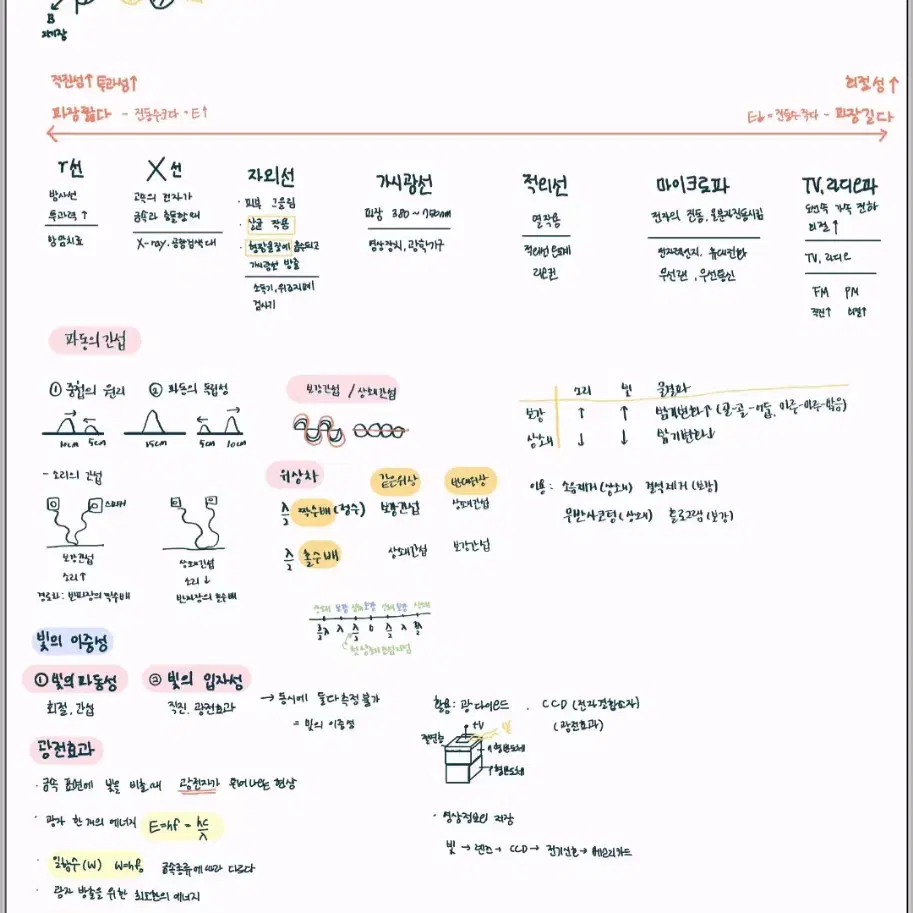 B
자기장
직진성↑ 투과성↑
회절성↑
파장짧다 - 진동수크다 - E↑
E↓ - 진동수작다 - 파장길다
γ선
X선
자외선
가시광선
적외선
마이크로파
TV, 라디오파
방사선
투과력↑
암치료
고속의 전자가
금속과 충돌할 때
X-ray, 공항검색대
· 피부 그을림
· 살균 작용
· 형광물질에 흡수되고
가시광선 방출
소독기, 위조지폐
검사기
파장 380~750nm
영상장치, 광학기구
열작용
적외선 온도계
리모컨
전자의 진동, 물분자진동시킴
전자레인지, 휴대전화
무선랜, 무선통신
도선속 가속 전하
회절↑
TV, 라디오
FM PM
직진↑ 회절↑
파동의 간섭
① 중첩의 원리
② 파동의 독립성
10cm 5cm 15cm 5cm 10cm
보강간섭 / 상쇄간섭
소리 빛 물결파
보강 ↑ ↑ 밝기변화↑ (골-골-어둠, 마루-마루-밝음)
상쇄 ↓ ↓ 밝기변화↓
- 소리의 간섭
스피커
보강간섭
소리↑
경로차: 반파장의 짝수배
상쇄간섭
소리↓
반파장의 홀수배
위상차 같은위상 반대위상
λ/2 짝수배 (정수) 보강간섭 상쇄간섭
λ/2 홀수배 상쇄간섭 보강간섭
이용: 소음제거(상쇄) 결석제거(보강)
무반사코팅(상쇄) 홀로그램(보강)
상쇄 보강 상쇄 보강 상쇄 보강 상쇄
3/2λ λ λ/2 0 λ/2 λ 3/2λ
빛의 이중성
① 빛의 파동성
회절, 간섭
② 빛의 입자성
직진, 광전효과
→ 동시에 둘다 측정 불가
= 빛의 이중성
활용: 광 다이오드, CCD (전하결합소자)
(광전효과)
+V
빛
절연층
n형반도체
p형반도체
광전효과
· 금속 표면에 빛을 비출 때 광전자가 튀어나오는 현상
· 광자 한 개의 에너지 E=hf = hc/λ
· 일함수(W) W=hf₀ 금속종류에 따라 다르다
· 광자 방출을 위한 최소한의 에너지
· 영상정보의 저장
빛 → 렌즈 → CCD → 전기신호 → 메모리카드